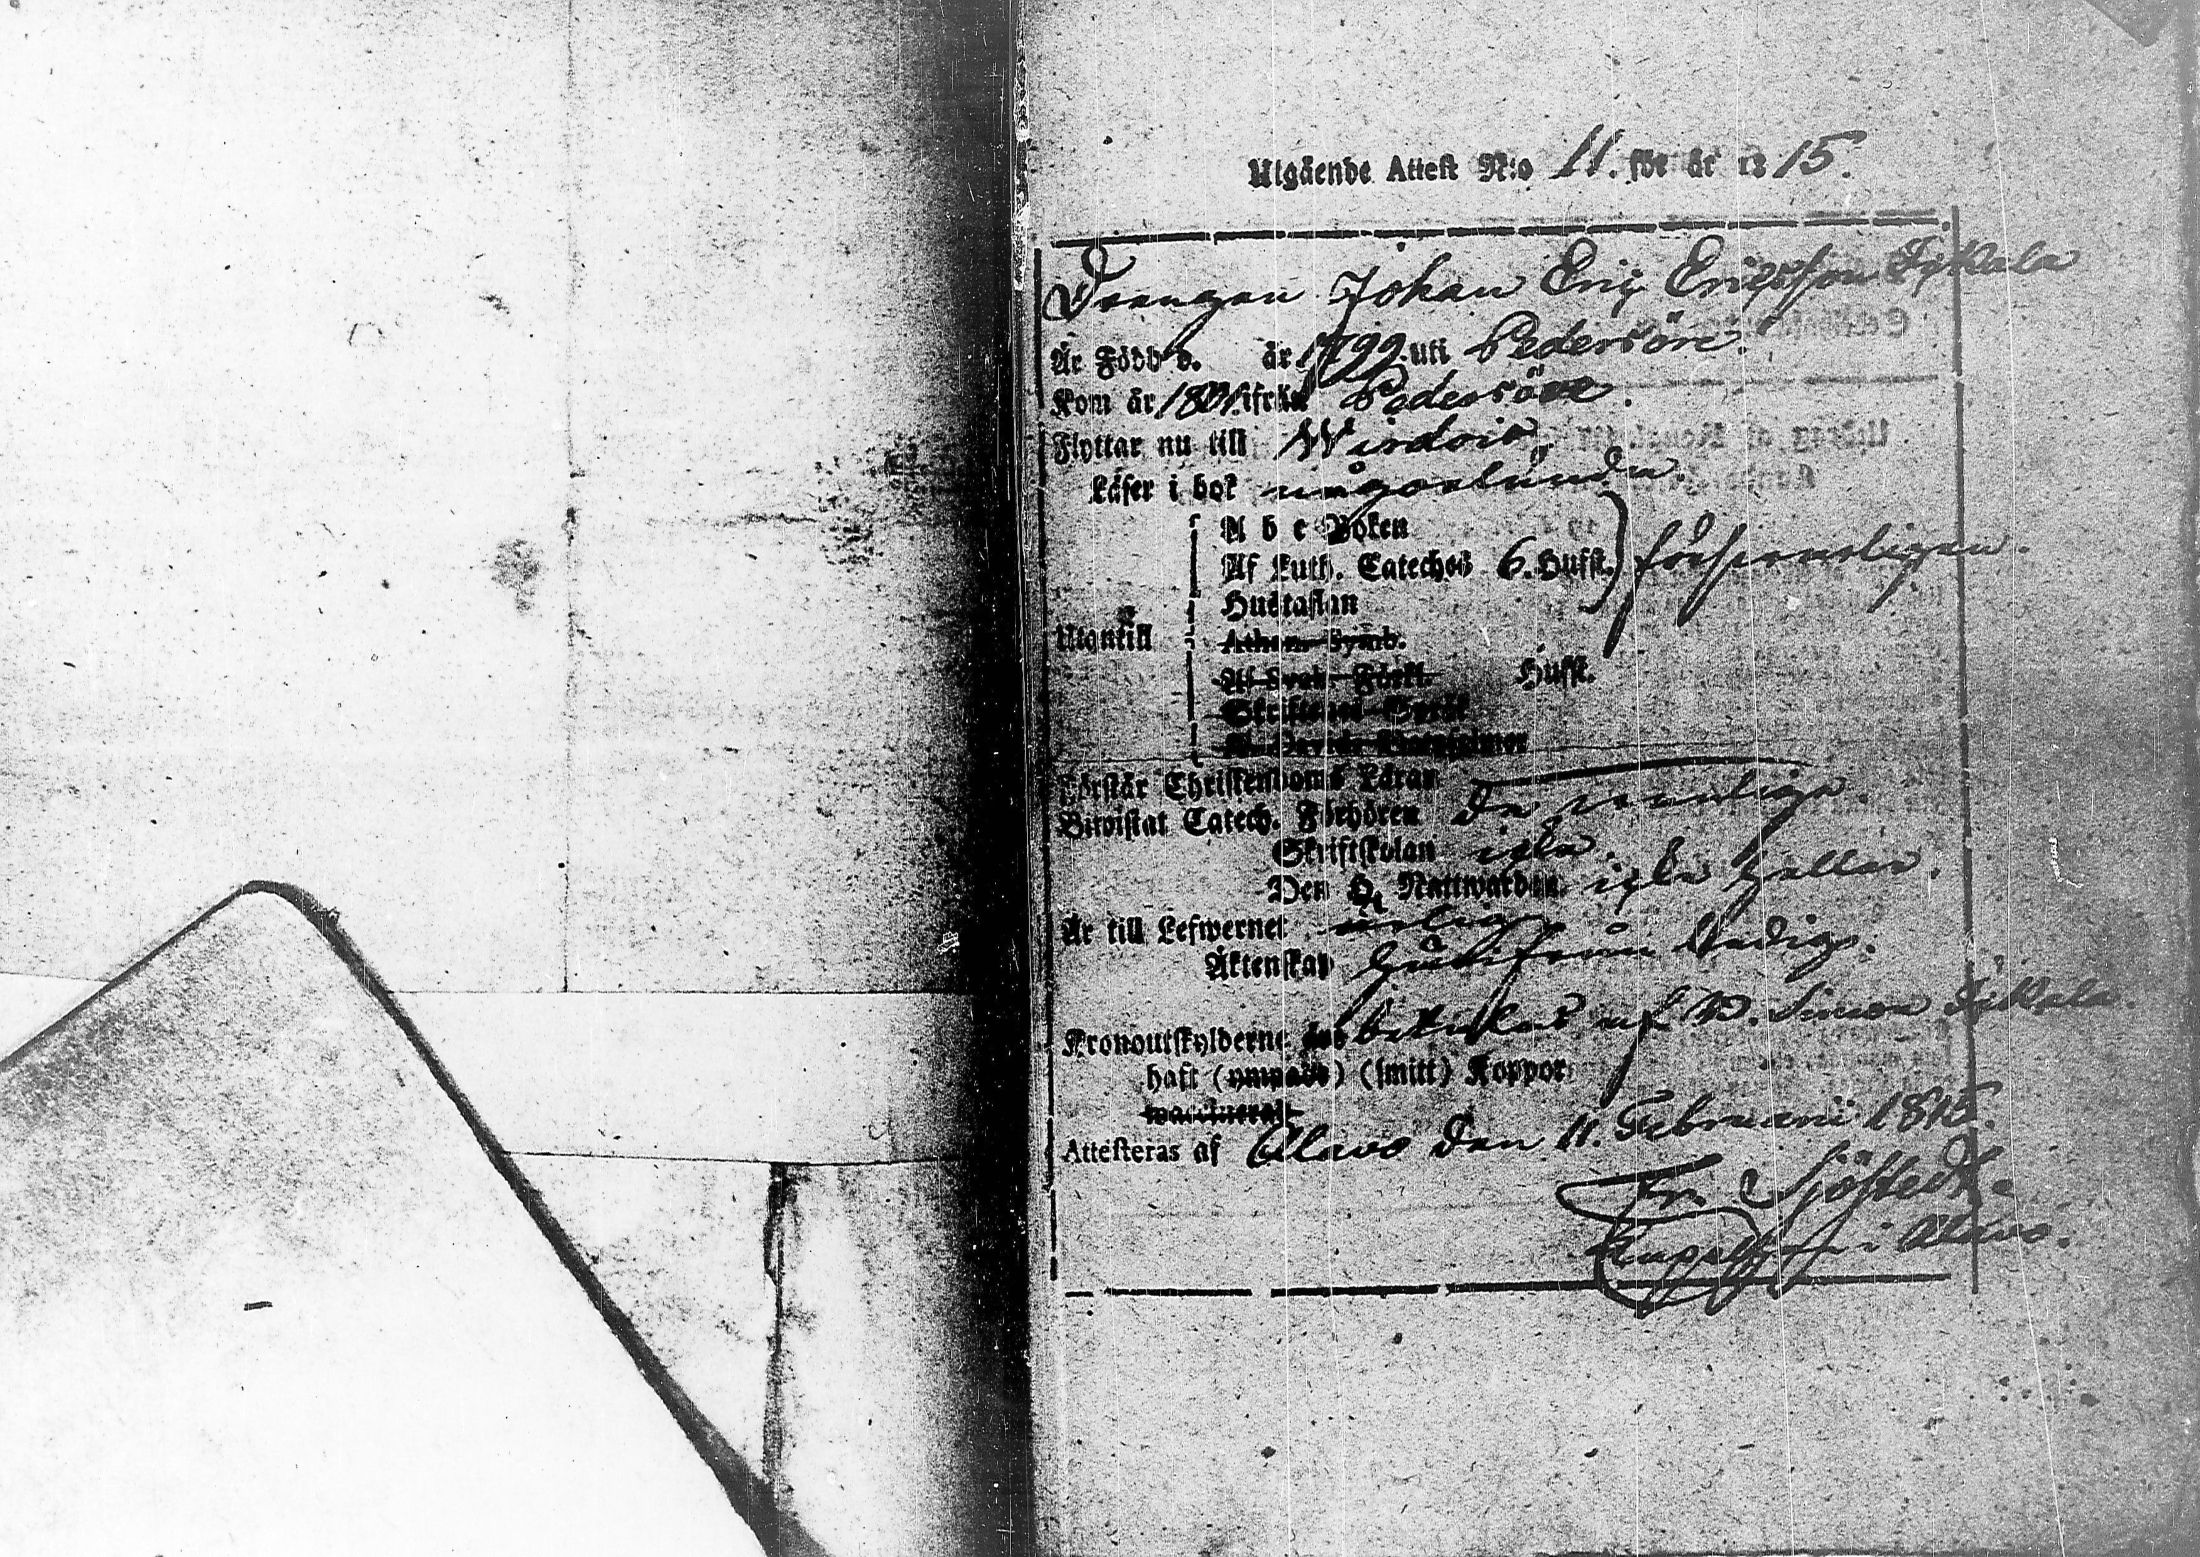 Utgående Attest N:o 11. för år 1815.
Drengen Johan Eric Ericsson Sykala
Är Född d. år 1799. uti Pedersöre.
Kom år 1801. ifrån Pedersöre.
Flyttar nu till Wirdois.
Läser i bok någorlunda.
A b c Boken
Af Luth. Cateches 6. Hufst.
Hustaflan
Utantill
Athan. Symb.
Af Sveb. Förkl. Hufst.
Skriftenes Språk
Förstår Christendoms Läran
Bivistat Catech. Förhören
Skriftskolan icke.
Den H. Nattwarden icke heller.
Är till Lefwernet ärlig
Äktenskap ledig.
Kronoutskylderne betalas af B. Simon Sykala.
haft (ympade) (smitt) Koppor
waccinerad
Attesteras af Alavo den 11. Februarii 1815.
Fr. Sjöstedt.
i Alavo.